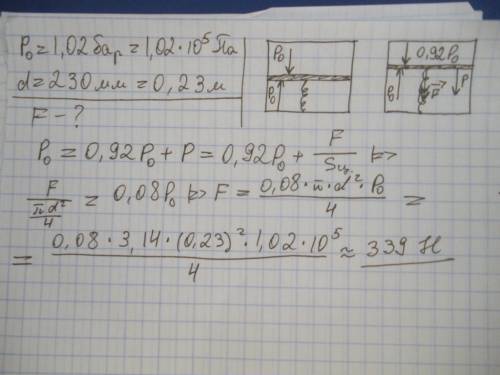 P₀ = 1,02 бар = 1,02·10⁵ Па
d = 230 мм = 0,23 м
F - ?
P₀
P₀
0,92P₀
P₀
F
P
P₀ = 0,92P₀ + P = 0,92P₀ + F/Sц. =>
F/(πd²/4) = 0,08P₀ => F = (0,08·π·d²·P₀)/4 =
= (0,08·3,14·(0,23)²·1,02·10⁵)/4 ≈ 339 Н